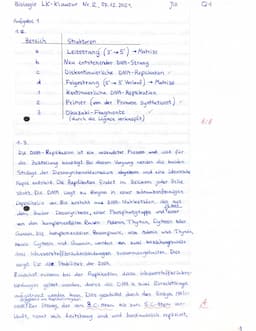 Biologie LK-Klausur Nr. 2, 07.12.2021 Q1
Aufgabe 1
1.2.
Bereich Strukturen
a Leitstrang (3'→5') → Matrize
b Neu entstehender DNA-Strang
c Diskontinuierliche DNA-Replikation ✓
d Folgestrang (5'→3' Verlauf) → Matrize
1 Kontinuierliche DNA-Replikation
2 Primer (von der Primase synthetisiert) ✓
3 Okazaki-Fragmente
(durch die Ligase verknüpft)
6/8
1.3.
Die DNA-Replikation ist ein wesentlicher Prozess und wird für
die Zellteilung benötigt. Bei diesem Vorgang werden die beiden
Stränge der Desoxyribonukleinsäure abgelesen und eine identische
Kopie erstellt. Die Replikation findet im Zellkern jeder Zelle
statt. Die DNA liegt zu Beginn in einer schraubenförmigen
Doppelhelix vor. Sie besteht aus DNA-Nukleotiden, die aus
dem Zucker Desoxyribose, einer Phosphatgruppe und
von den komplementären Basen: Adenin, Thymin, Cytosin oder
Guanin. Die komplementären Basenpaare, also Adenin und Thymin,
sowie Cytosin und Guanin, werden an zwei beziehungsweise
drei Wasserstoffbrückenbindungen zusammengehalten. Dies
sorgt für die Stabilität der DNA.
Zunächst müssen bei der Replikation diese Wasserstoffbrücken-
bindungen gelöst werden, damit die DNA in zwei Einzelstränge
A